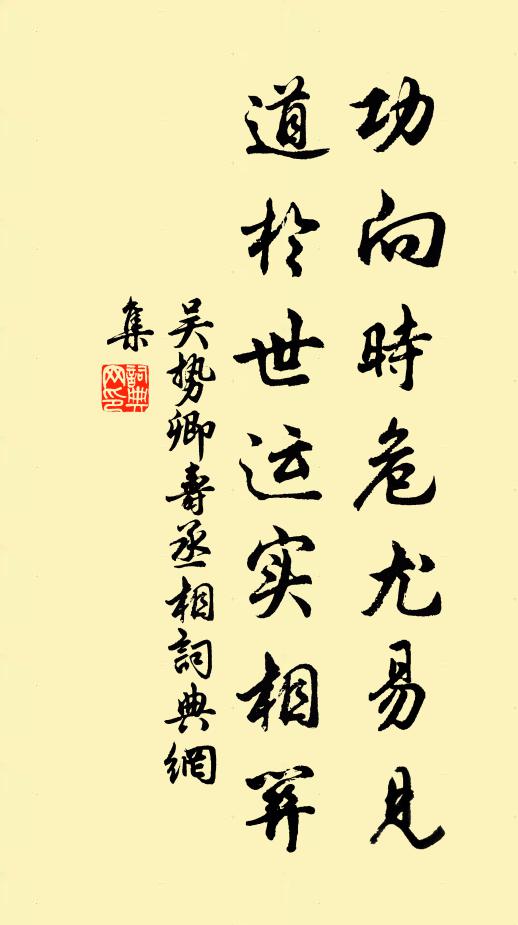 功向時危尤易見
道於世运实相関
吴势卿寿丞相詞典網
集
詞典網印